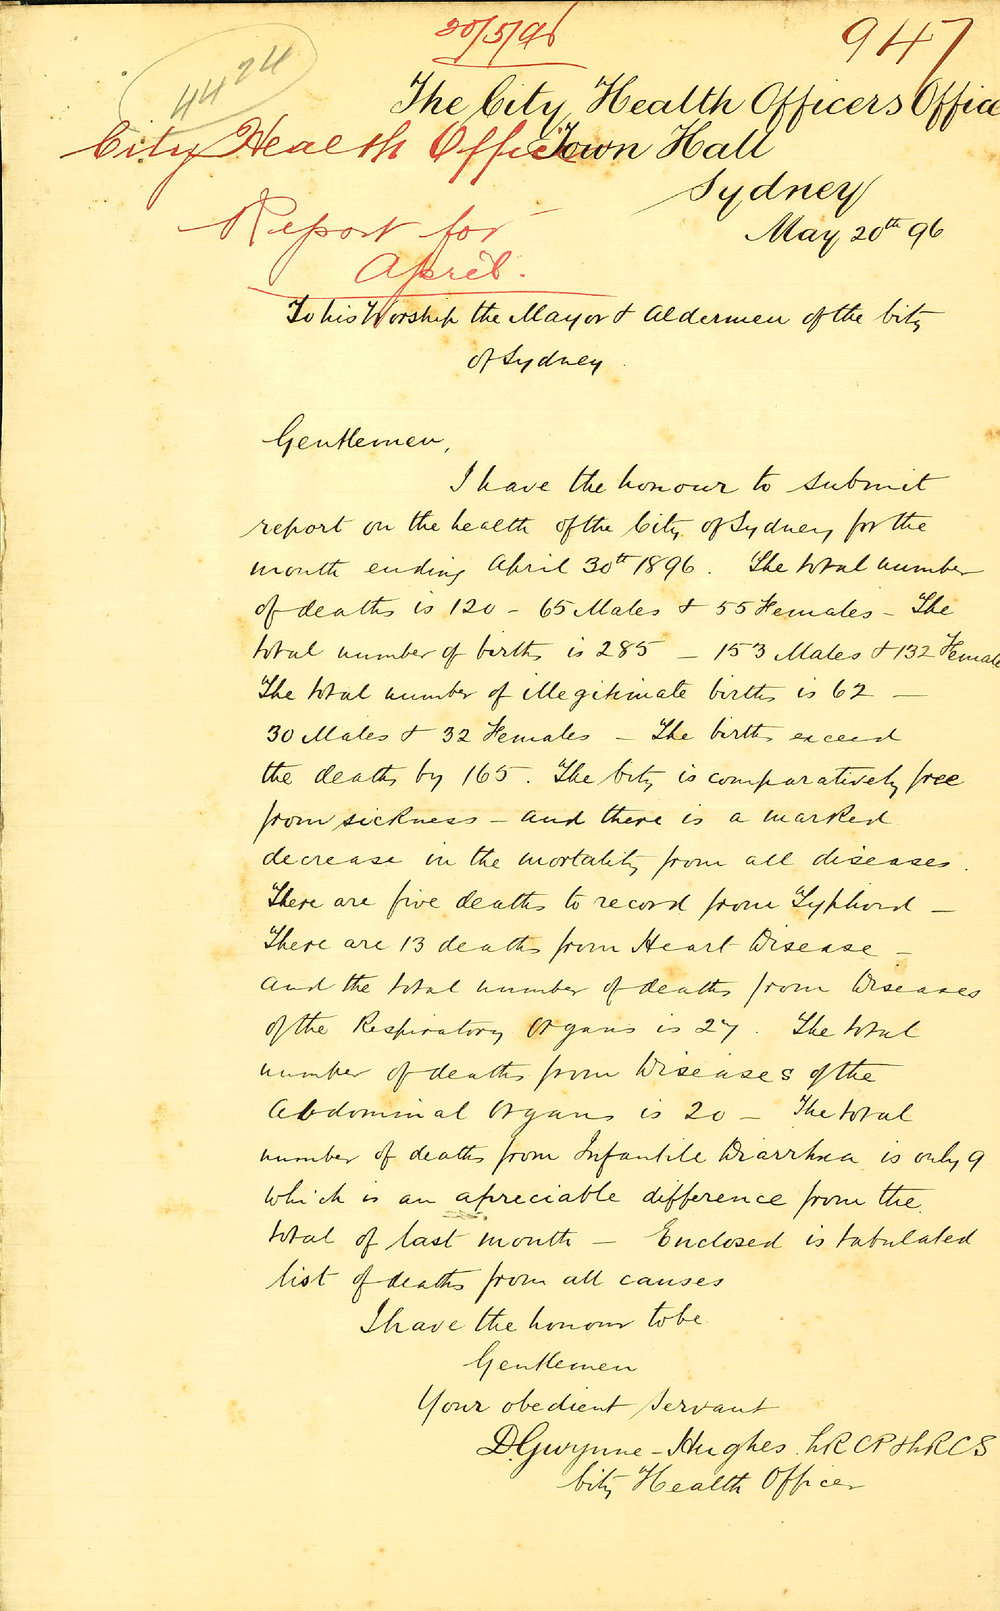 20/5/96
947
4424
The City Health Officers Office
City Health Office
Town Hall
Sydney
Report for
May 20th 96
April.
To his Worship the Mayor & Aldermen of the City
of Sydney.
Gentlemen,
I have the honour to submit
report on the health of the City of Sydney for the
month ending April 30th 1896. The total number
of deaths is 120 - 65 Males & 55 Females - The
total number of births is 285 - 153 Males & 132 Female
The total number of illegitimate births is 62 -
30 Males & 32 Females - The births exceed
the deaths by 165. The City is comparatively free
from sickness - and there is a marked
decrease in the mortality from all diseases.
There are five deaths to record from Typhoid -
There are 13 deaths from Heart Disease -
and the total number of deaths from Diseases
of the Respiratory Organs is 27. The total
number of deaths from Diseases of the
Abdominal Organs is 20 - The total
number of deaths from Infantile Diarrhœa is only 9
which is an apreciable difference from the
total of last month - Enclosed is tabulated
list of deaths from all causes
I have the honour to be
Gentlemen
Your obedient servant
D. Gwynne-Hughes. LRCP & LRCS
City Health Officer